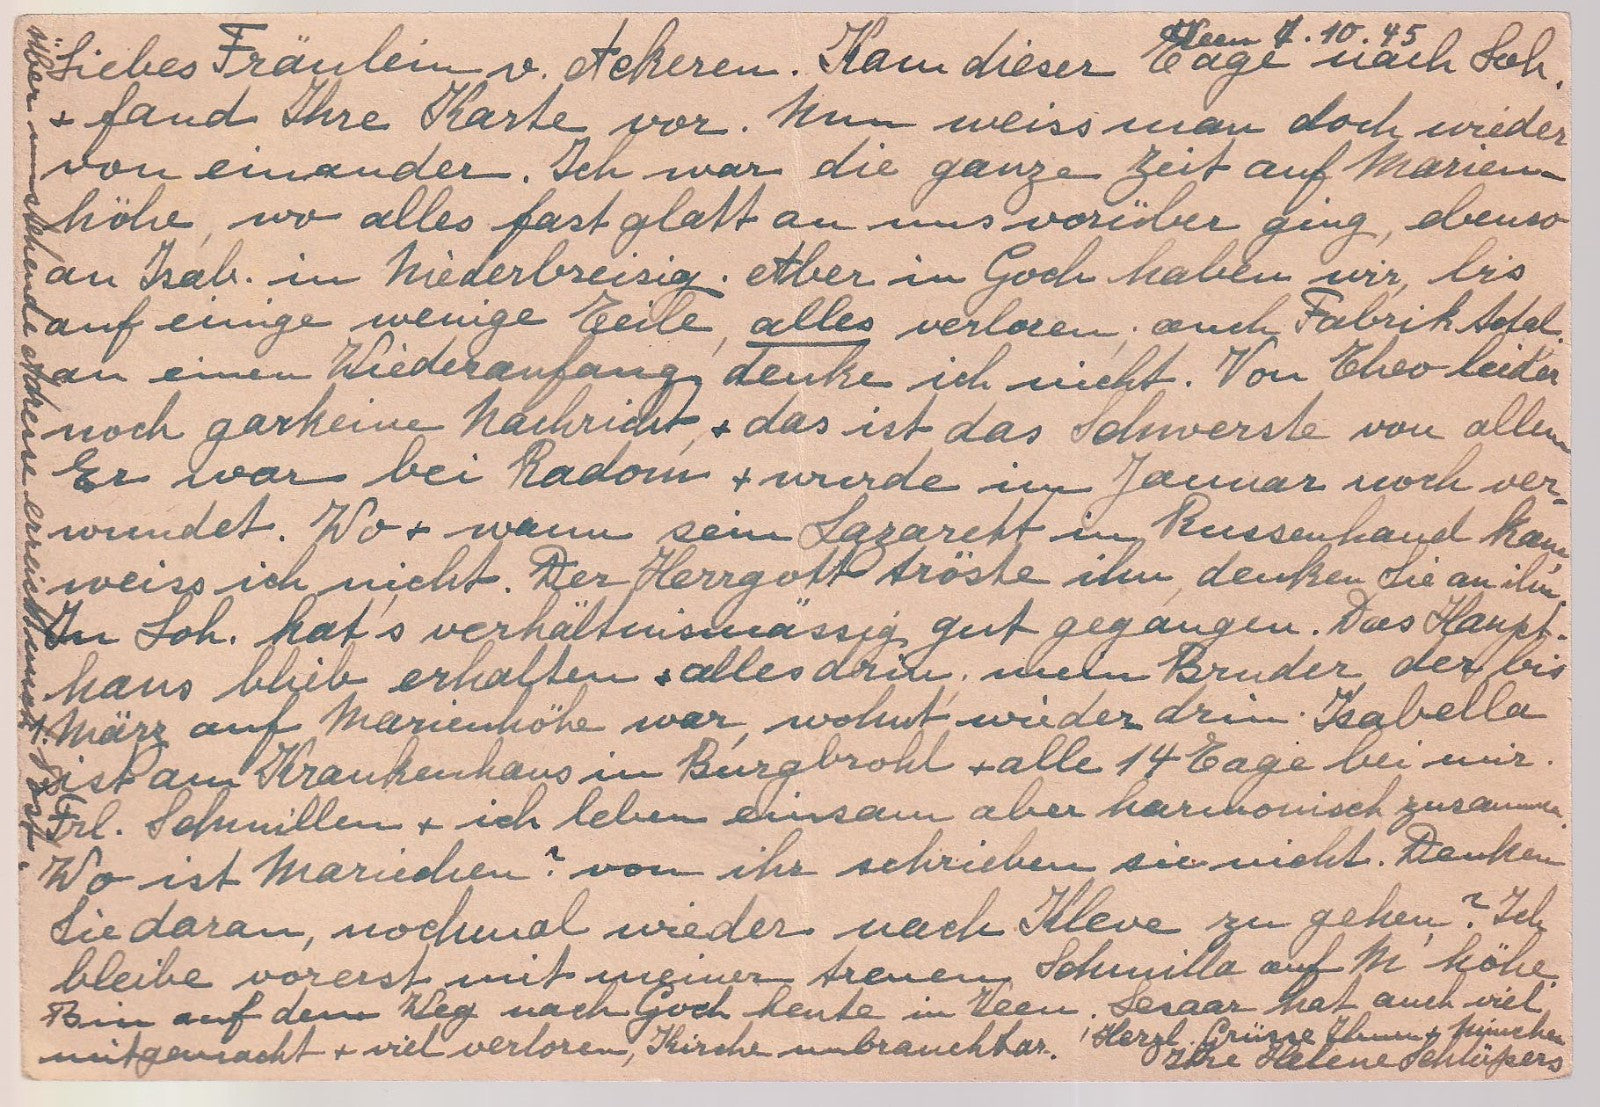 Veen 7.10.45
Liebes Fräulein v. Ackeren. Kam dieser Tage nach Loh.
+ fand Ihre Karte vor. Nun weiss man doch wieder
von einander. Ich war die ganze Zeit auf Marien-
höhe, wo alles fast glatt an uns vorüber ging, ebenso
an Isab. in Niederbreisig. Aber in Goch haben wir, bis
auf einige wenige Teile, alles verloren, auch Fabrik total.
an einen Wiederanfang denke ich nicht. Von Theo leider
noch garkeine Nachricht, + das ist das Schwerste von allem
Er war bei Radom + wurde im Januar noch ver-
wundet. Wo + wann sein Lazarett in Russenhand kam,
weiss ich nicht. Der Herrgott tröste ihn, denken Sie an ihn.
In Loh. hat's verhältnismässig gut gegangen. Das Haupt-
haus blieb erhalten + alles drin, mein Bruder der bis
März auf Marienhöhe war, wohnt wieder drin. Isabella
ist am Krankenhaus in Burgbrohl + alle 14 Tage bei mir.
Frl. Schmillen + ich leben einsam aber harmonisch zusammen.
Wo ist Mariechen? von ihr schrieben sie nicht. Denken
Sie daran, nochmal wieder nach Kleve zu gehen? Ich
bleibe vorerst mit meiner treuen Schmilla auf M'höhe.
Bin auf dem Weg nach Goch heute in Veen. Lesaar hat auch viel
mitgemacht + viel verloren, Kirche unbrauchbar.
Herzl. Grüsse Ihnen +
Ihre Helene Schlößers
Über umstehende Adresse erreicht mich Post.